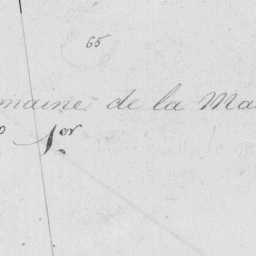 65
maine de la Ma
o 1er.